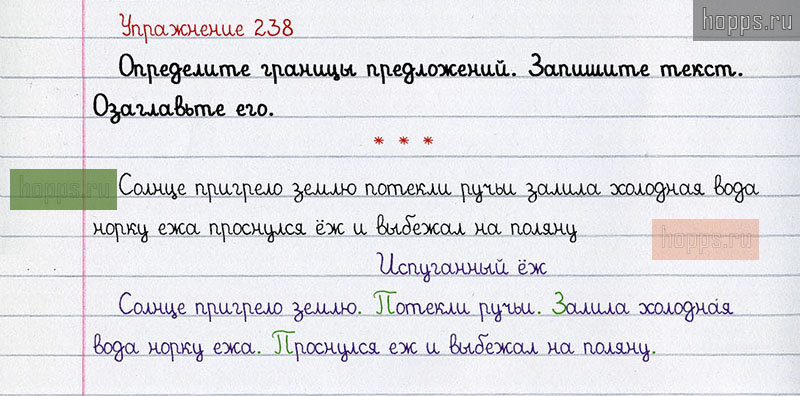 hopps.ru
Упражнение 238
Определите границы предложений. Запишите текст.
Озаглавьте его.
* * *
hopps.ru
Солнце пригрело землю потекли ручьи залила холодная вода
норку ежа проснулся ёж и выбежал на поляну
hopps.ru
Испуганный ёж
Солнце пригрело землю. Потекли ручьи. Залила холодная
вода норку ежа. Проснулся еж и выбежал на поляну.